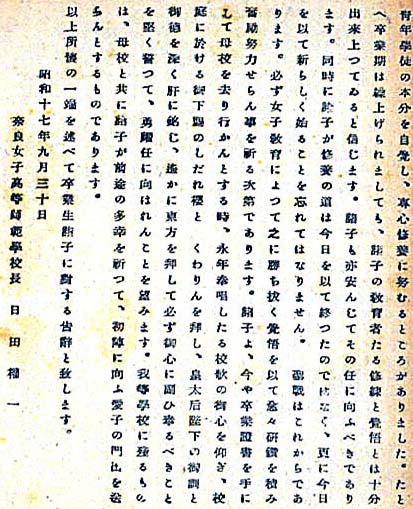 青年學徒の本分を自覺し、專心修養に努むるところがありました。たと
へ卒業期は繰上げられましても、諸子の教育者たる修練と覺悟とは十分
出來上つてゐると信じます。諸子も亦安んじてその任に向ふべきであり
ます。同時に諸子が修養の道は今日を以て終つたのではなく、更に今日
を以て新らしく始ることを忘れてはなりません。 戰はこれからであ
ります。必ず女子教育によつて之に勝ち拔く覺悟を以て益々研鑽を積み
奮勵努力せられん事を祈る次第であります。諸子よ、今や卒業證書を手に
して母校を去り行かんとする時、永年奉唱したる校歌の御心を仰ぎ、校
庭に於ける御下賜のしだれ櫻と くわりんを拜し、皇太后陛下の御訓と
御徳を深く肝に銘じ、遙かに東方を拜して必ず御心に副ひ奉るべきこと
を堅く誓つて、勇躍任に向はれんことを望みます。我等學校に殘るもの
は、母校と共に諸子が前途の多幸を祈つて、初陣に向ふ愛子の門出を送
らんとするものであります。
以上所懷の一端を述べて卒業生諸子に對する告辭と致します。
昭和十七年九月三十日
奈良女子高等師範學校長 日田權一